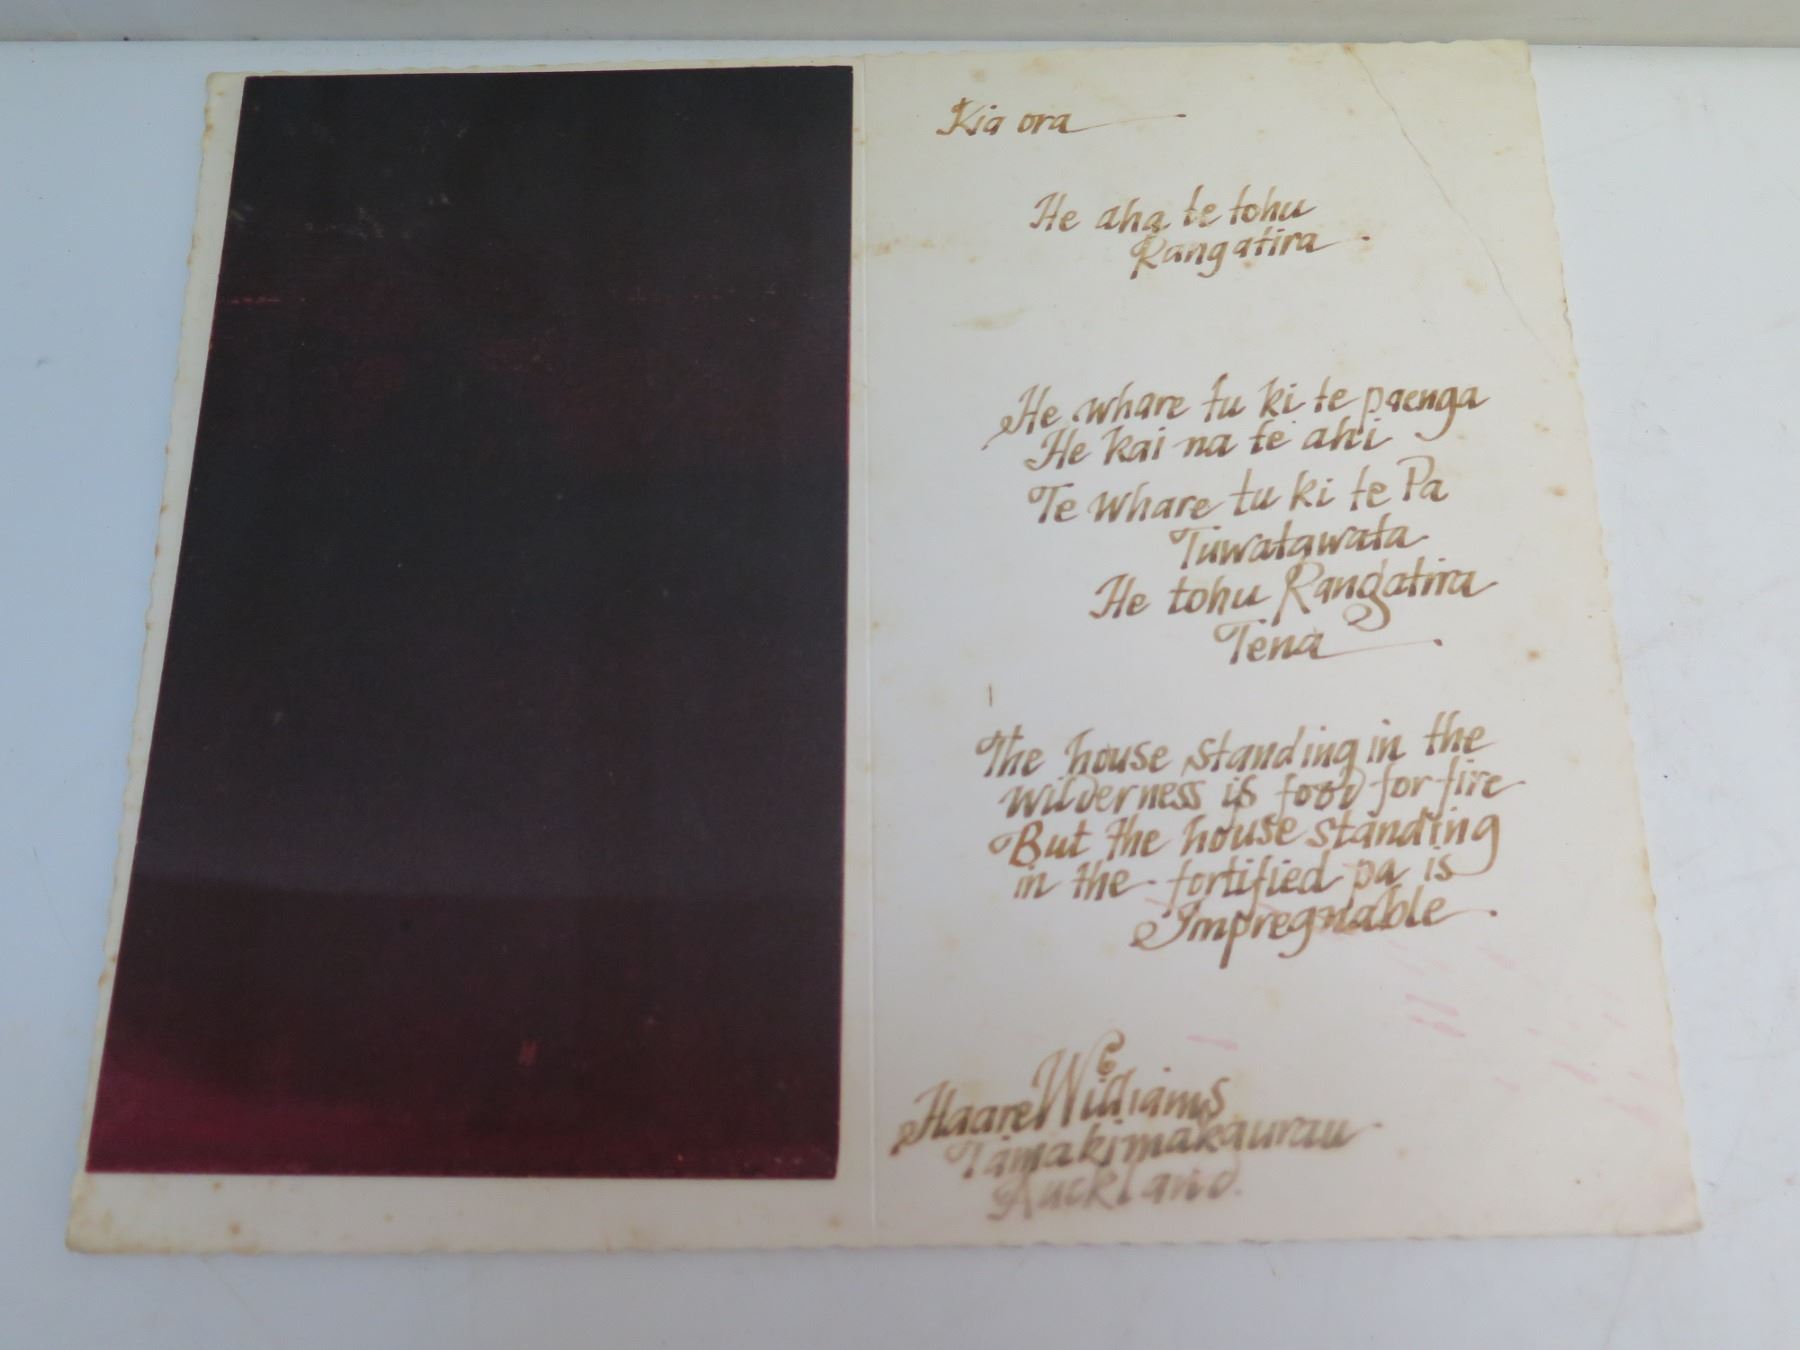 Kia ora
He aha te tohu
Rangatira
He whare tu ki te paenga
He kai na te ahi
Te whare tu ki te Pa
Tuwatawata
He tohu Rangatira
Tena
The house standing in the
wilderness is food for fire
But the house standing
in the fortified pa is
Impregnable
Haare Williams
Tamakimakaurau
Auckland.